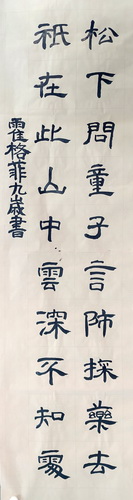 松下問童子言師採藥去
祇在此山中雲深不知處
霍格菲九歲書